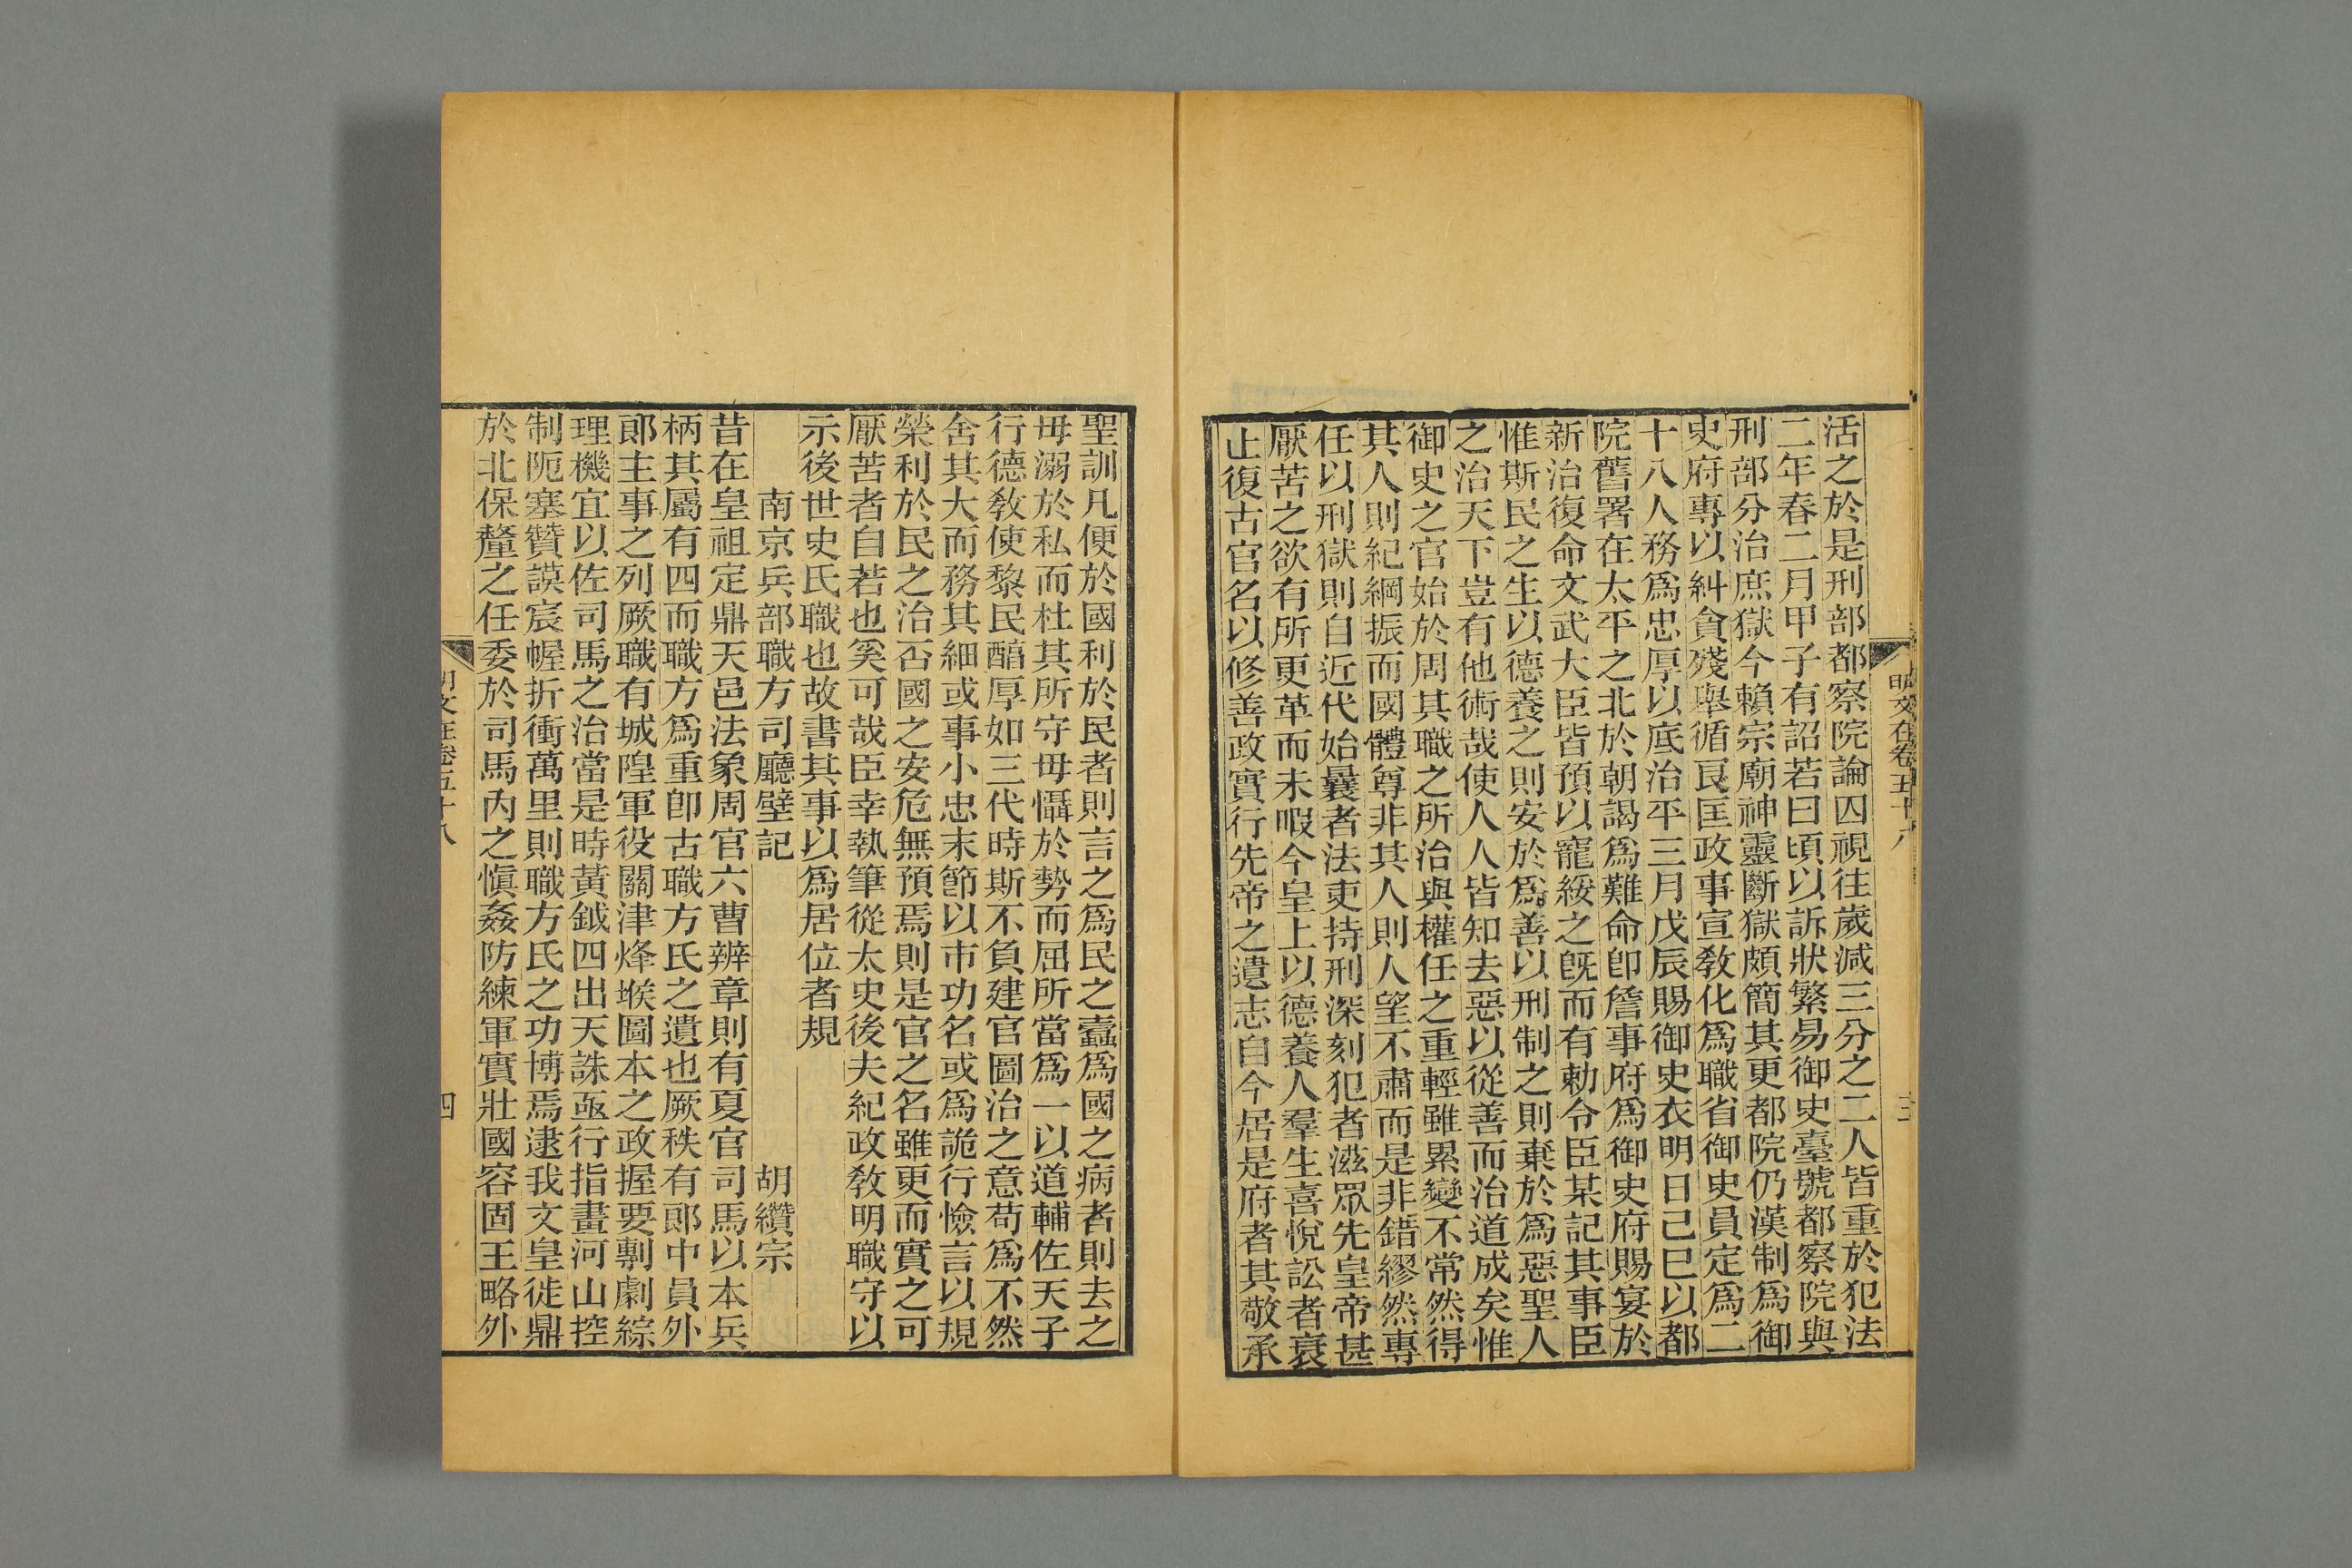 活之於是刑部都察院論囚視往歲減三分之二人皆重於犯法
二年春二月甲子有詔若曰頃以訴狀繁易御史臺號都察院與
刑部分治庶獄今賴宗廟神靈斷獄頗簡其更都院仍漢制爲御
史府專以糾貪殘舉循良匡政事宣敎化爲職省御史員定爲二
十八人務爲忠厚以底治平三月戊辰賜御史衣明日己巳以都
院舊署在太平之北於朝謁爲難命卽詹事府爲御史府賜宴於
新治復命文武大臣皆預以寵綏之旣而有勅令臣某記其事臣
惟斯民之生以德養之則安於爲善以刑制之則棄於爲惡聖人
之治天下豈有他術哉使人人皆知去惡以從善而治道成矣惟
御史之官始於周其職之所治與權任之重輕雖累變不常然得
其人則紀綱振而國體尊非其人則人望不肅而是非錯繆然專
任以刑獄則自近代始曩者法吏持刑深刻犯者滋眾先皇帝甚
厭苦之欲有所更革而未暇今皇上以德養人羣生喜悅訟者衰
止復古官名以修善政實行先帝之遺志自今居是府者其敬承
明文在卷五十八
聖訓凡便於國利於民者則言之爲民之蠹爲國之病者則去之
毋溺於私而杜其所守毋懾於勢而屈所當爲一以道輔佐天子
行德敎使黎民醕厚如三代時斯不負建官圖治之意苟爲不然
舍其大而務其細或事小忠末節以市功名或爲詭行憸言以規
榮利於民之治否國之安危無預焉則是官之名雖更而實之可
厭苦者自若也奚可哉臣幸執筆從太史後夫紀政敎明職守以
示後世史氏職也故書其事以爲居位者規
南京兵部職方司廳壁記 胡纘宗
昔在皇祖定鼎天邑法象周官六曹辨章則有夏官司馬以本兵
柄其屬有四而職方爲重卽古職方氏之遺也厥秩有郞中員外
郞主事之列厥職有城隍軍役關津烽堠圖本之政握要剸劇綜
理機宜以佐司馬之治當是時黃鉞四出天誅亟行指畫河山控
制阨塞贊謨宸幄折衝萬里則職方氏之功博焉逮我文皇徙鼎
於北保釐之任委於司馬內之愼姦防練軍實壯國容固王略外
明文在卷五十八
四